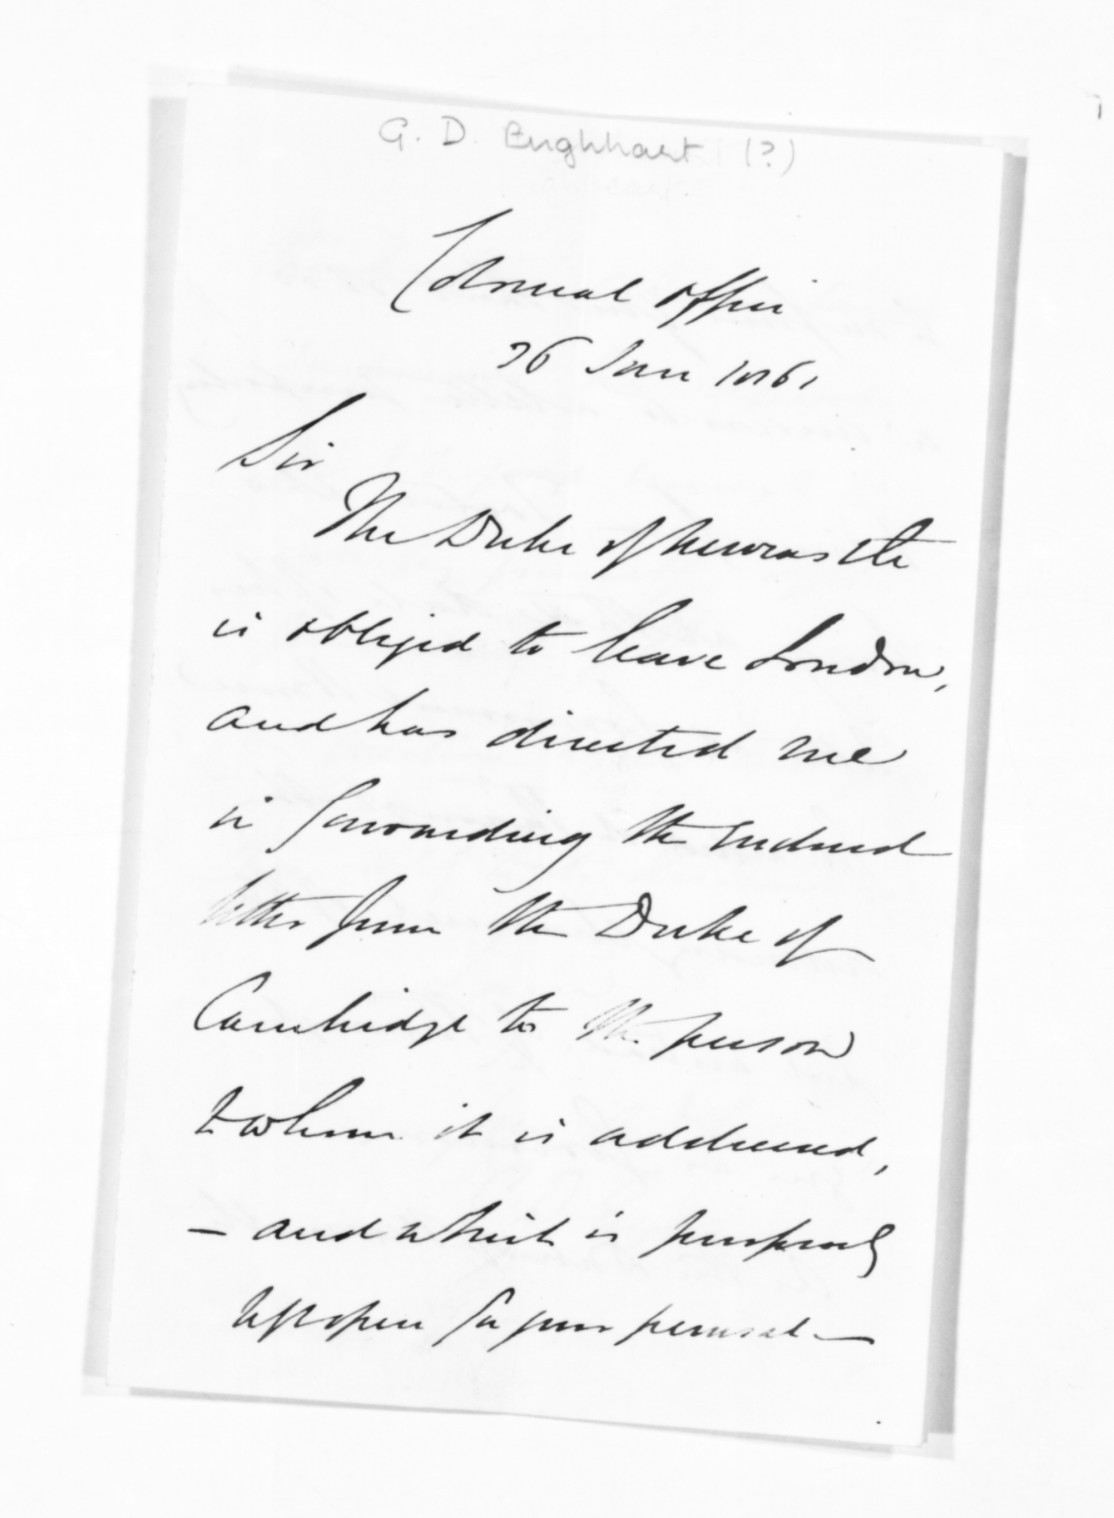 G. D. Enghhart (?)
Colonial Office
26 Jan 1861
Sir
The Duke of Newcastle
is obliged to leave London,
and has directed me
in forwarding the enclosed
letter from the Duke of
Cambridge to the person
to whom it is addressed,
- and which is purposely
left open for your perusal -